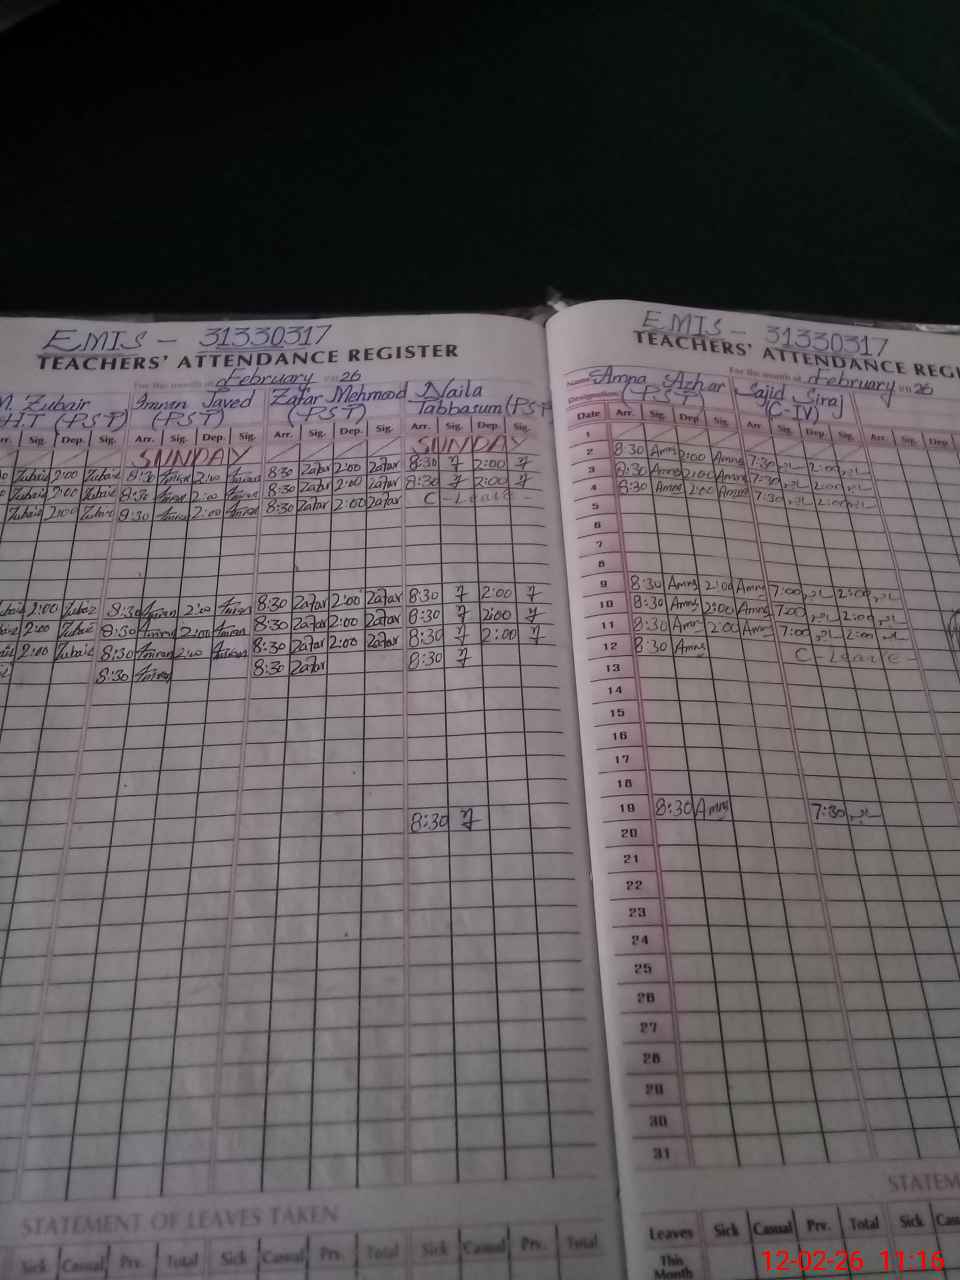 EMIS - 31330317
TEACHERS' ATTENDANCE REGISTER
For the month of February 26
M. Zubair Imran Javed Zafar Mehmood Naila
H.T (PST) (PST) (PST) Tabbasum (PST
Arr. Sig. Dep. Sig. Arr. Sig. Dep. Sig. Arr. Sig. Dep. Sig.
SUNDAY SUNDAY
Zubair 2:00 Zubair 8:30 Imran 2:00 Imran 8:30 Zafar 2:00 Zafar 8:30 2:00
Zubair 2:00 Zubair 8:30 Imran 2:00 Imran 8:30 Zafar 2:00 Zafar 8:30 2:00
Zubair 2:00 Zubair 8:30 Imran 2:00 Imran 8:30 Zafar 2:00 Zafar C - Leave -
2:00 Zubair 8:30 Imran 2:00 Imran 8:30 Zafar 2:00 Zafar 8:30 2:00
2:00 Zubair 8:30 Imran 2:00 Imran 8:30 Zafar 2:00 Zafar 8:30 2:00
2:00 Zubair 8:30 Imran 2:00 Imran 8:30 Zafar 2:00 Zafar 8:30 2:00
8:30 Imran 8:30 Zafar 8:30
8:30
STATEMENT OF LEAVES TAKEN
Sick Casual Prv. Total Sick Casual Prv. Total Sick Casual Prv. Total
EMIS - 31330317
TEACHERS' ATTENDANCE REGI
For the month of February 26
Name Amna Azhar Sajid Siraj
Designation (PST) (C-IV)
Date Arr. Sig. Dep. Sig. Arr. Sig. Dep. Sig. Arr. Sig. Dep.
1
2 8:30 Amna 2:00 Amna 7:30 2:00
3 8:30 Amna 2:00 Amna 7:30 2:00
4 8:30 Amna 2:00 Amna 7:30 2:00
5
6
7
8
9 8:30 Amna 2:00 Amna 7:00 2:00
10 8:30 Amna 2:00 Amna 7:00 2:00
11 8:30 Amna 2:00 Amna 7:00 2:00
12 8:30 Amna C - Leave -
13
14
15
16
17
18
19 8:30 Amna 7:30
20
21
22
23
24
25
26
27
28
29
30
31
STATEM
Leaves Sick Casual Prv. Total Sick Cas
This Month
12-02-26 11:16